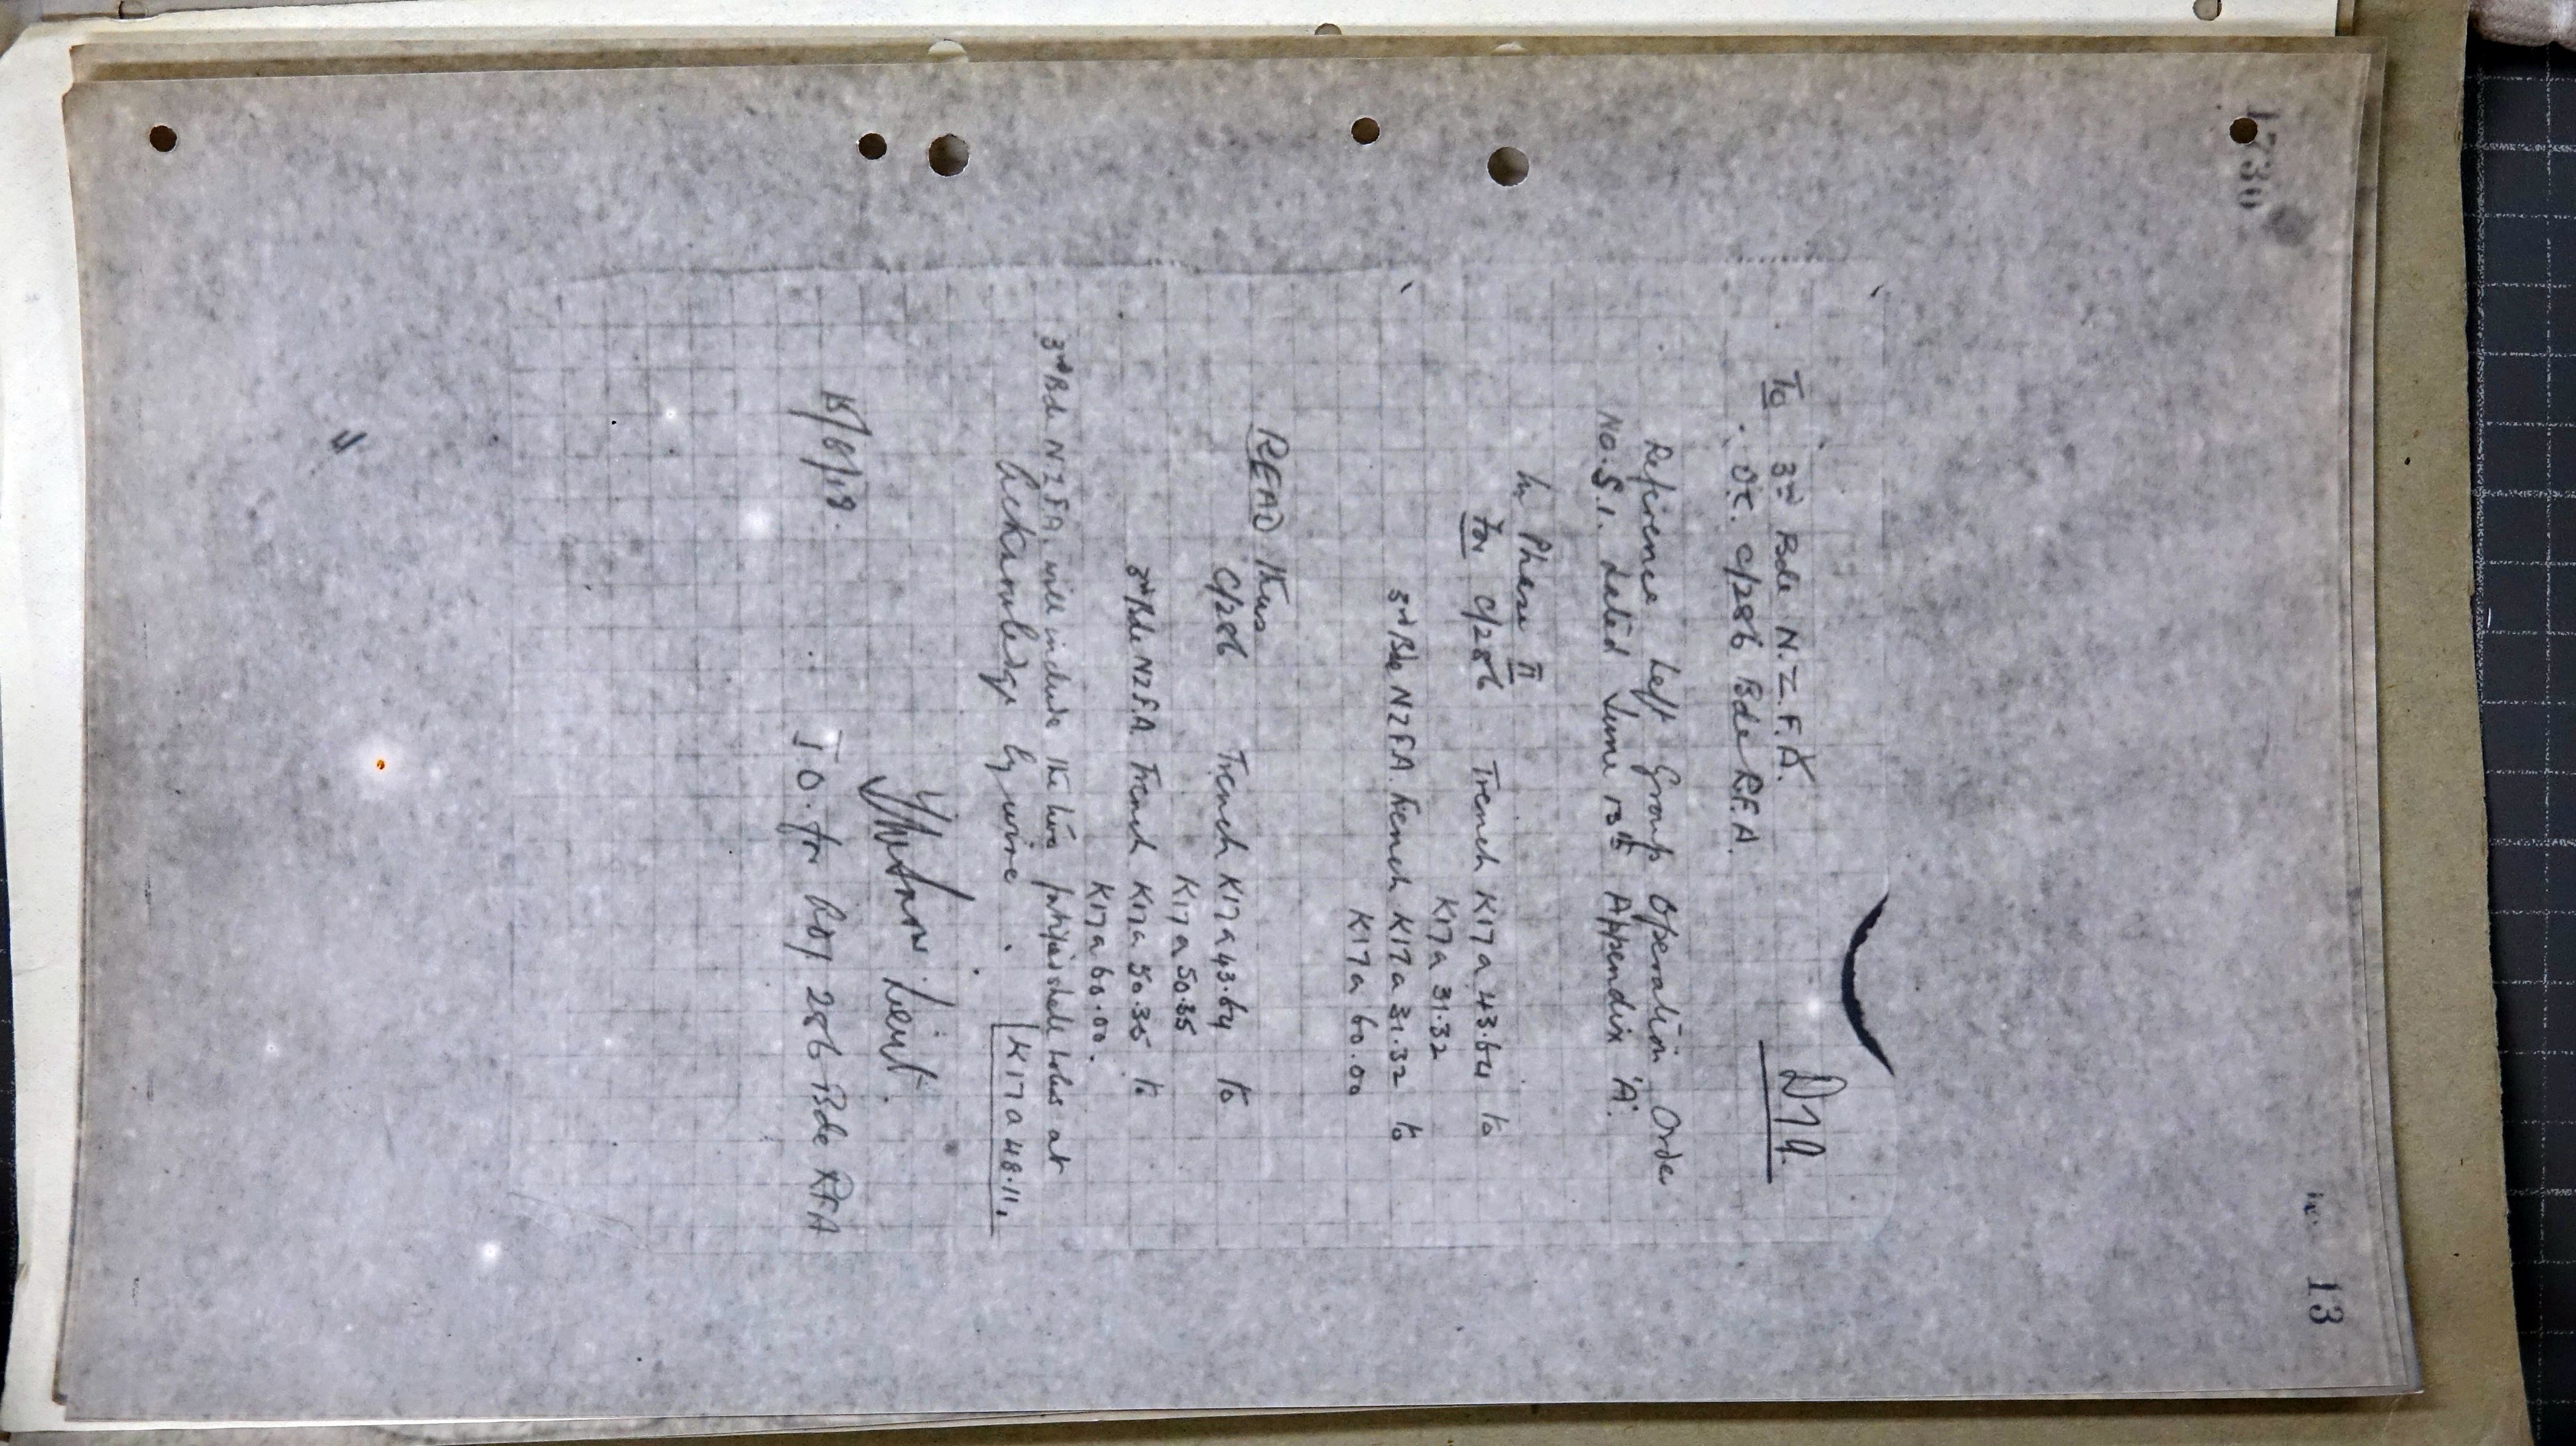 1730
13
D19.
To 3rd Bde N.Z.F.A.
O.C. C/286 Bde R.F.A.
Reference Left Group Operation Order
No. S.1. dated June 13th Appendix 'A'.
In Phase II
For C/286 Trench K17a 43.64 to
K17a 31.32
3rd Bde NZFA Trench K17a 31.32 to
K17a 60.00
READ thus
C/286 Trench K17a 43.64 to
K17a 50.35
3rd Bde NZFA Trench K17a 50.35 to
K17a 60.00.
3rd Bde NZFA. will include the two fortified shell holes at
K17a 48.11.
Acknowledge by wire.
Lieut.
15/6/18. I O. for 286 Bde RFA